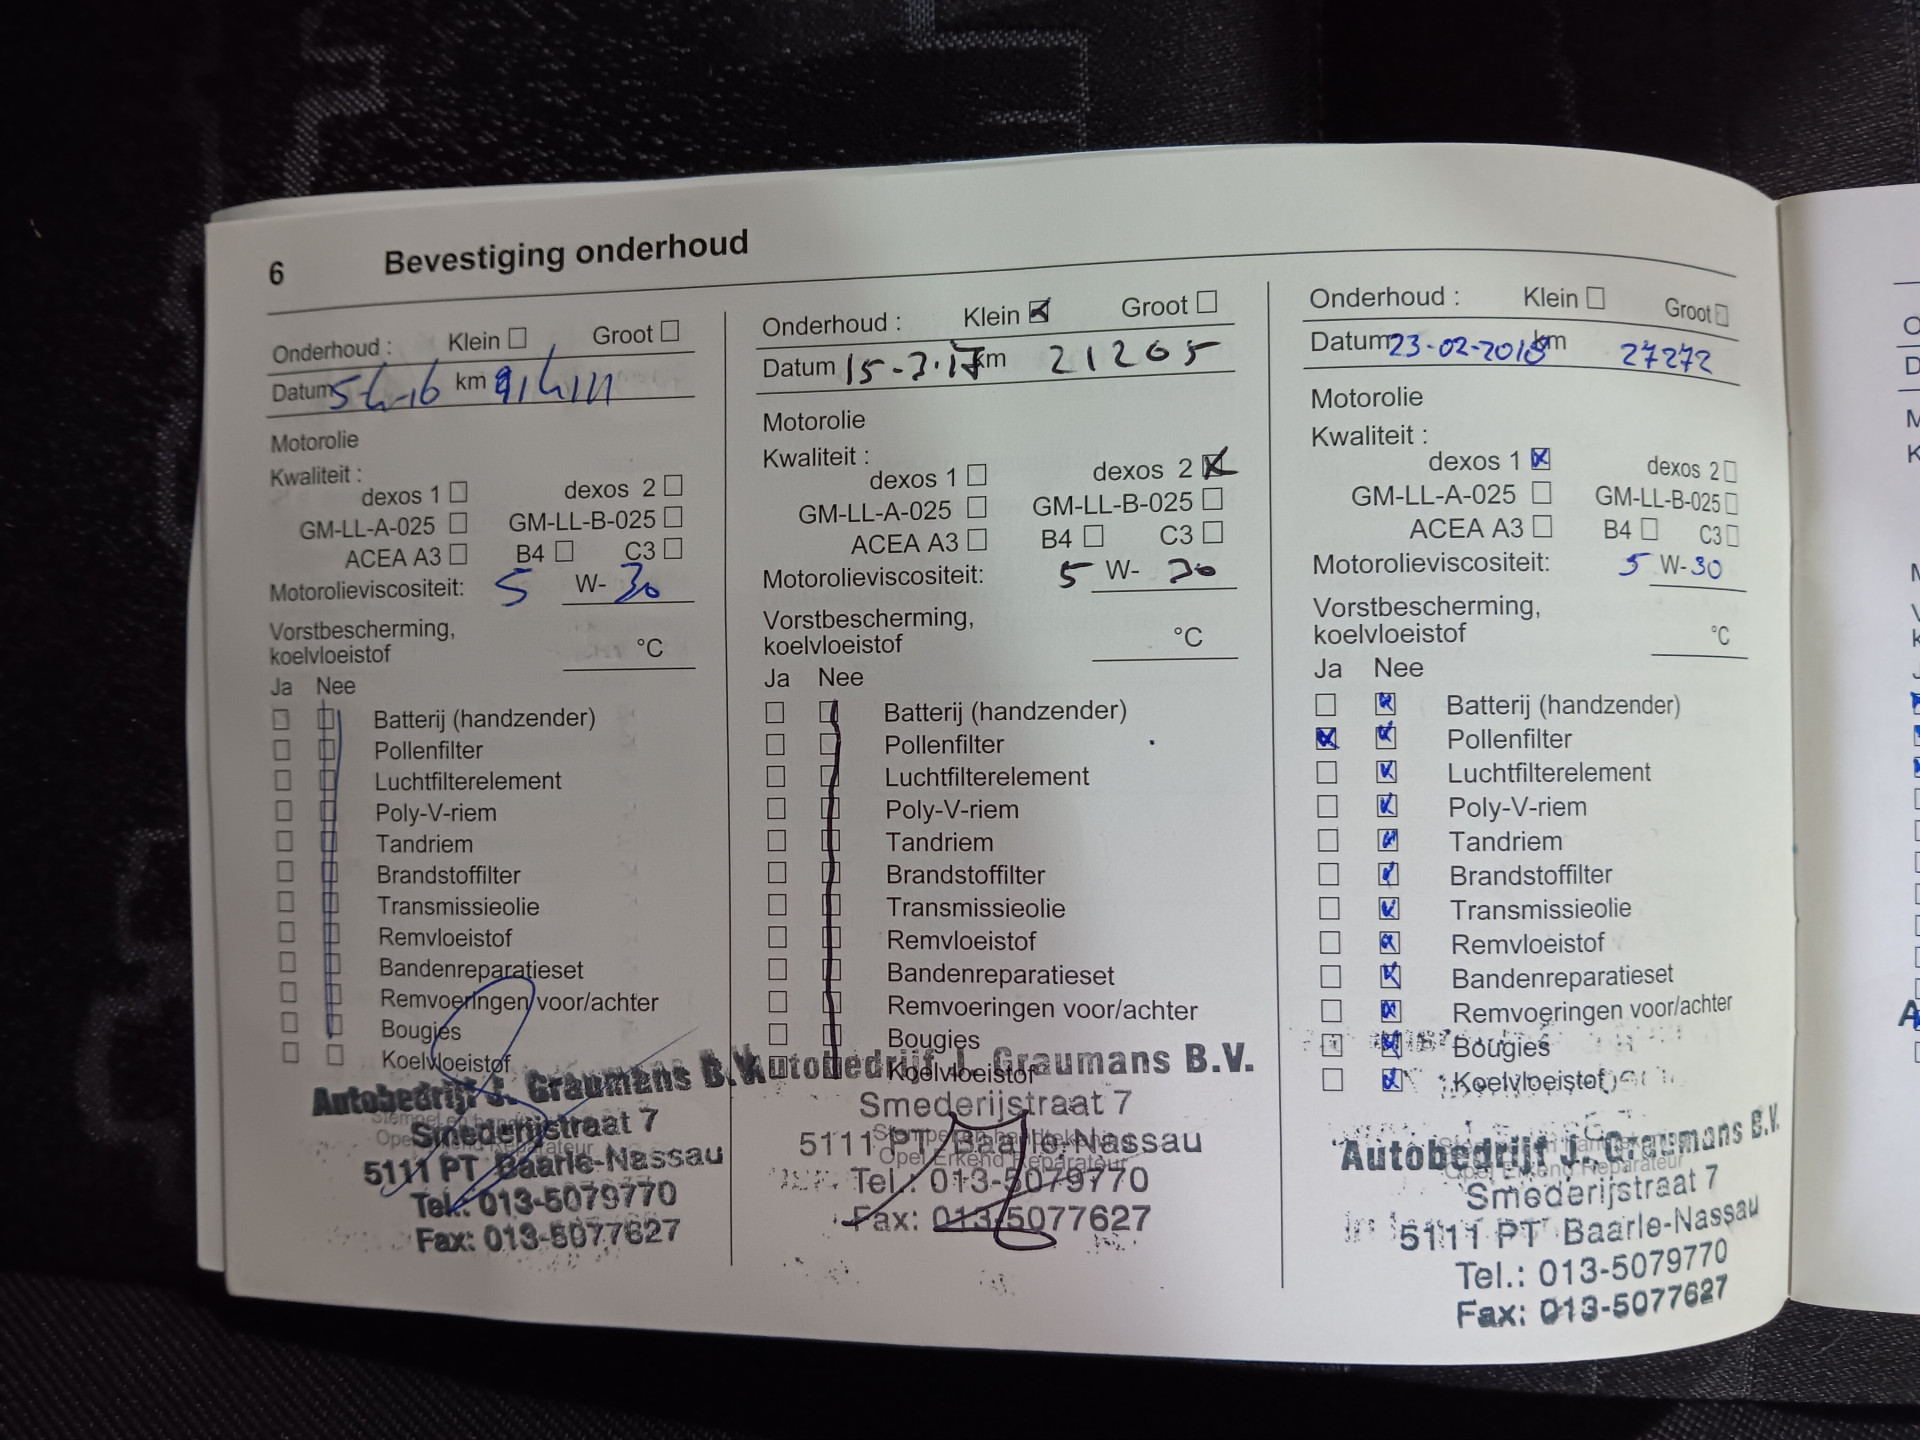 6 Bevestiging onderhoud
Onderhoud : Klein Groot
Datum km
Motorolie
Kwaliteit :
dexos 1 dexos 2
GM-LL-A-025 GM-LL-B-025
ACEA A3 B4 C3
Motorolieviscositeit: 5 W- 30
Vorstbescherming,
koelvloeistof °C
Ja Nee
Batterij (handzender)
Pollenfilter
Luchtfilterelement
Poly-V-riem
Tandriem
Brandstoffilter
Transmissieolie
Remvloeistof
Bandenreparatieset
Remvoeringen voor/achter
Bougies
Koelvloeistof
Autobedrijf J. Graumans B.V.
Smederijstraat 7
5111 PT Baarle-Nassau
Tel.: 013-5079770
Fax: 013-5077627
Onderhoud : Klein Groot
Datum 15-3-17 km 21265
Motorolie
Kwaliteit :
dexos 1 dexos 2
GM-LL-A-025 GM-LL-B-025
ACEA A3 B4 C3
Motorolieviscositeit: 5 W- 30
Vorstbescherming,
koelvloeistof °C
Ja Nee
Batterij (handzender)
Pollenfilter
Luchtfilterelement
Poly-V-riem
Tandriem
Brandstoffilter
Transmissieolie
Remvloeistof
Bandenreparatieset
Remvoeringen voor/achter
Bougies
Koelvloeistof
Autobedrijf J. Graumans B.V.
Smederijstraat 7
Stempel en handtekening
5111 PT Baarle-Nassau
Opel Erkend Reparateur
Tel.: 013-5079770
Fax: 013-5077627
Onderhoud : Klein Groot
Datum 23-02-2018 km 27272
Motorolie
Kwaliteit :
dexos 1 dexos 2
GM-LL-A-025 GM-LL-B-025
ACEA A3 B4 C3
Motorolieviscositeit: 5 W-30
Vorstbescherming,
koelvloeistof °C
Ja Nee
Batterij (handzender)
Pollenfilter
Luchtfilterelement
Poly-V-riem
Tandriem
Brandstoffilter
Transmissieolie
Remvloeistof
Bandenreparatieset
Remvoeringen voor/achter
Bougies
Koelvloeistof
Autobedrijf J. Graumans B.V.
Opel Erkend Reparateur
Smederijstraat 7
5111 PT Baarle-Nassau
Tel.: 013-5079770
Fax: 013-5077627